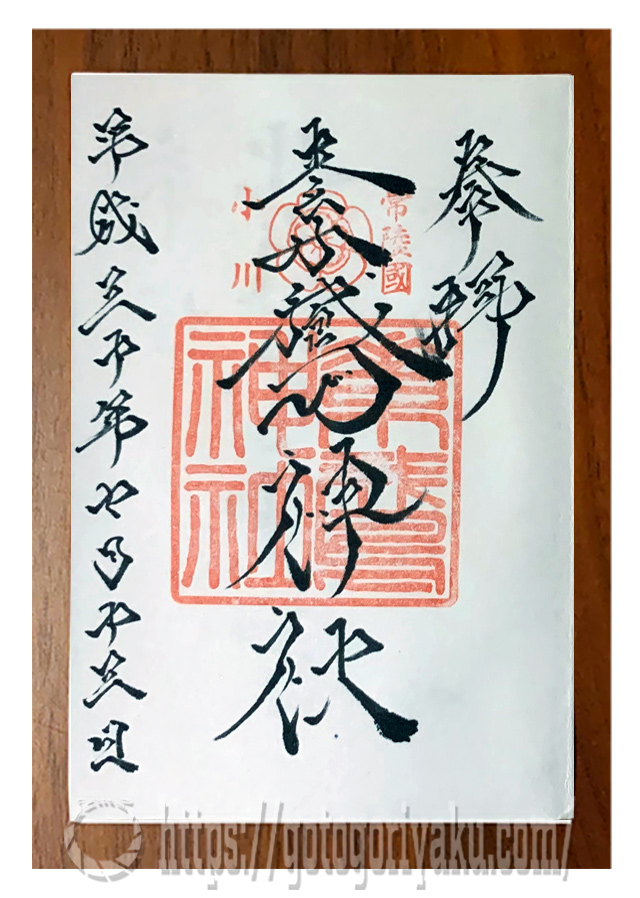 奉拝
常陸國
小川
素鵞神社
素鵞
神社
平成三十年七月十三日
https://gotogoriyaku.com/